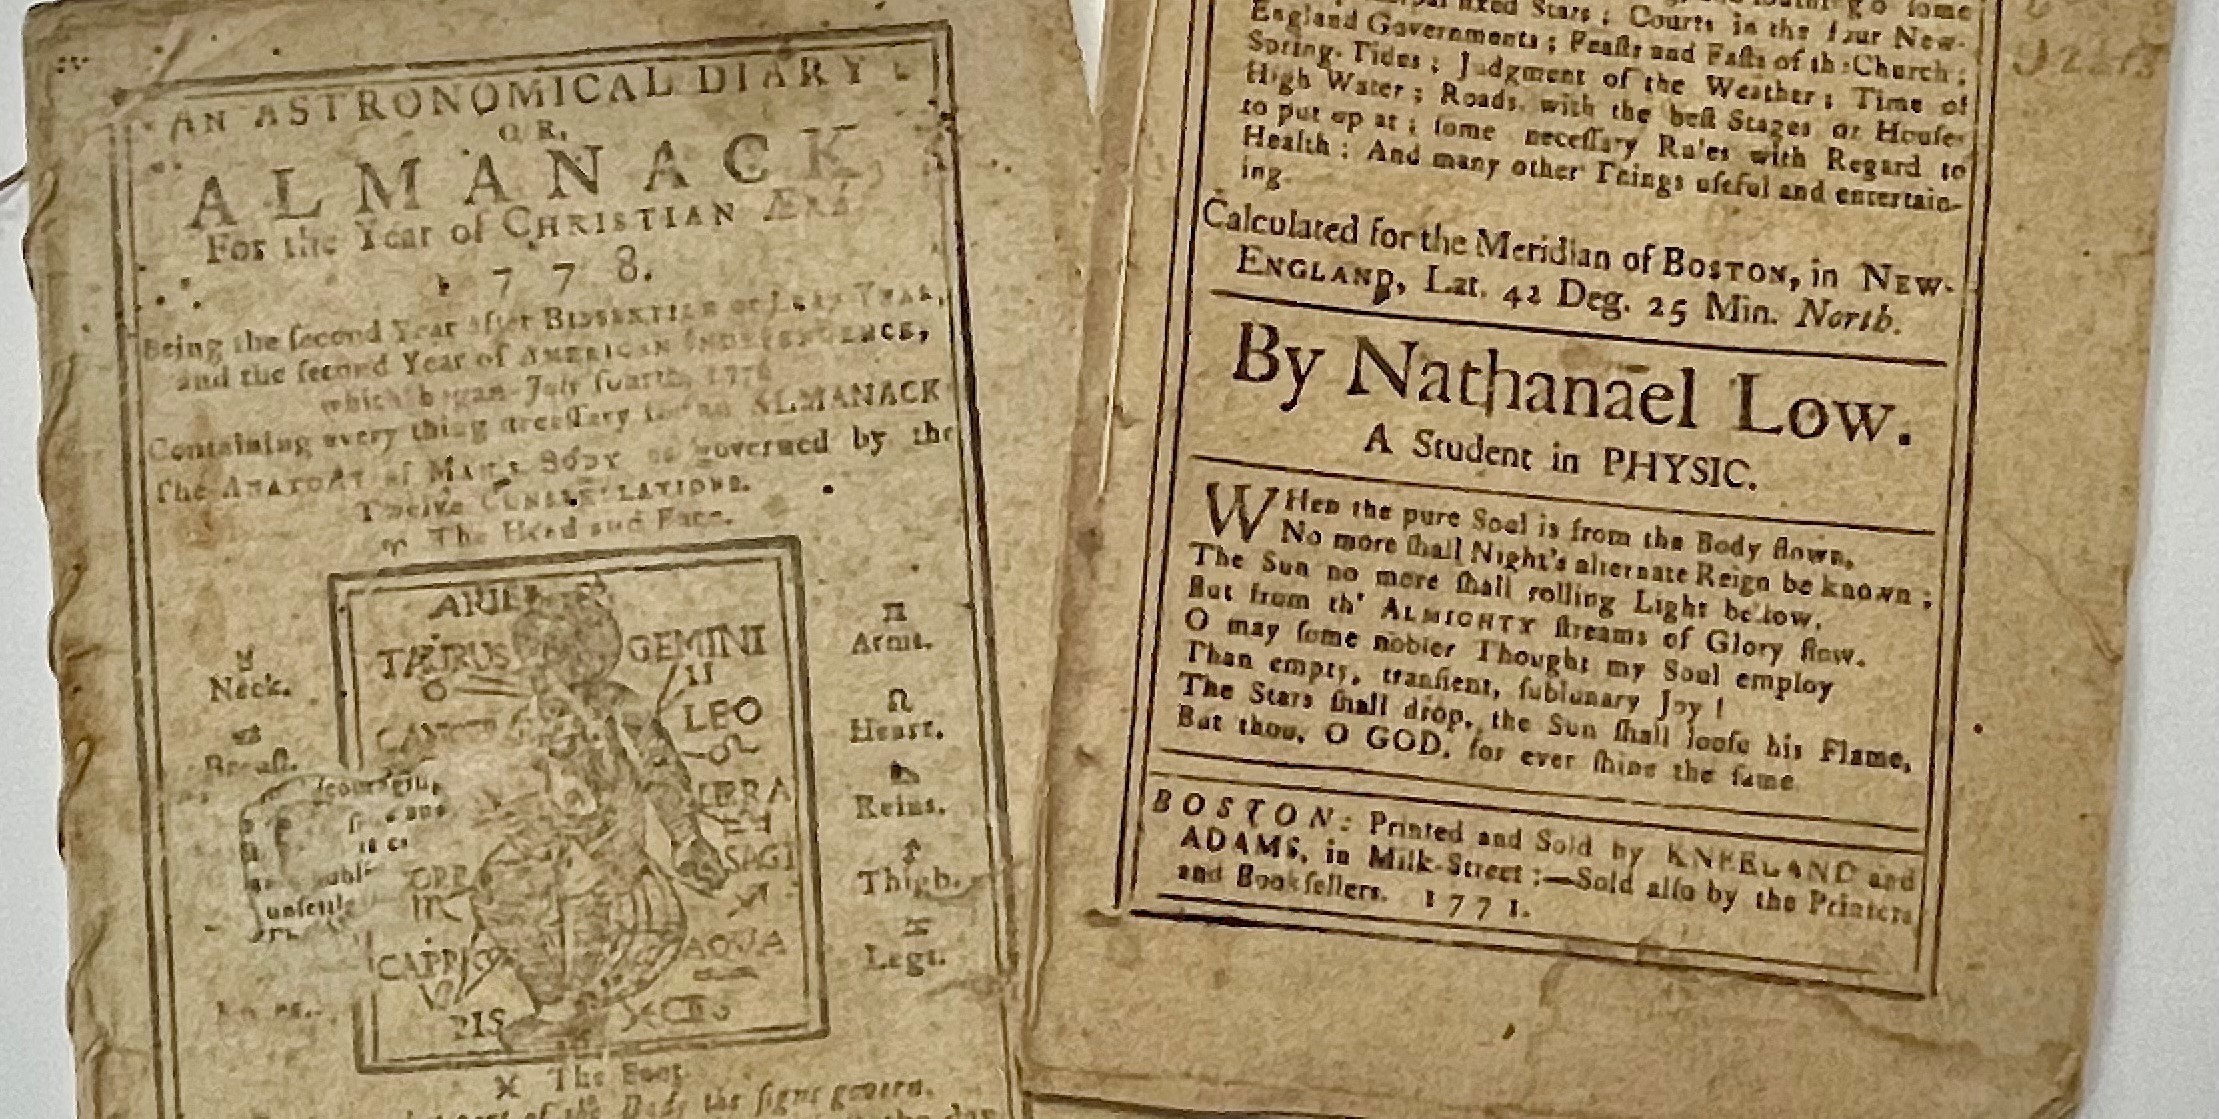 AN ASTRONOMICAL DIARY
OR,
ALMANACK,
For the Year of CHRISTIAN ÆRA
1778.
Being the ſecond Year after BISSEXTILE or LEAP YEAR,
and the ſecond Year of AMERICAN INDEPENDENCE,
which began July fourth, 1776
Containing every thing neceſſary for an ALMANACK
The ANATOMY of Man's BODY as governed by the
Twelve CONSTELLATIONS.
♈ The Head and Face.
ARIE
TAURUS
GEMINI
♊
LEO
♌
SAGI
♐
CAPRIC
AQUA
PIS
♉
Neck.
♋
Breaſt.
♊
Arms.
♌
Heart.
Reins.
Thigh.
Legs.
unſettle
The Feet.
the ſigns govern.
fixed Stars; Courts in the four New-
England Governments; Feaſts and Faſts of the Church;
Spring-Tides; Judgment of the Weather; Time of
High Water; Roads, with the beſt Stages or Houſes
to put up at; ſome neceſſary Rules with Regard to
Health: And many other Things uſeful and entertain-
ing.
Calculated for the Meridian of BOSTON, in NEW-
ENGLAND, Lat. 42 Deg. 25 Min. North.
By Nathanael Low.
A Student in PHYSIC.
WHen the pure Soul is from the Body flown,
No more ſhall Night's alternate Reign be known;
The Sun no more ſhall rolling Light beſtow,
But from th' ALMIGHTY ſtreams of Glory flow.
O may ſome nobler Thought my Soul employ
Than empty, tranſient, ſublunary Joy!
The Stars ſhall drop, the Sun ſhall looſe his Flame,
But thou, O GOD, for ever ſhine the ſame
BOSTON: Printed and Sold by KNEELAND and
ADAMS, in Milk-Street:—Sold alſo by the Printers
and Bookſellers. 1771.